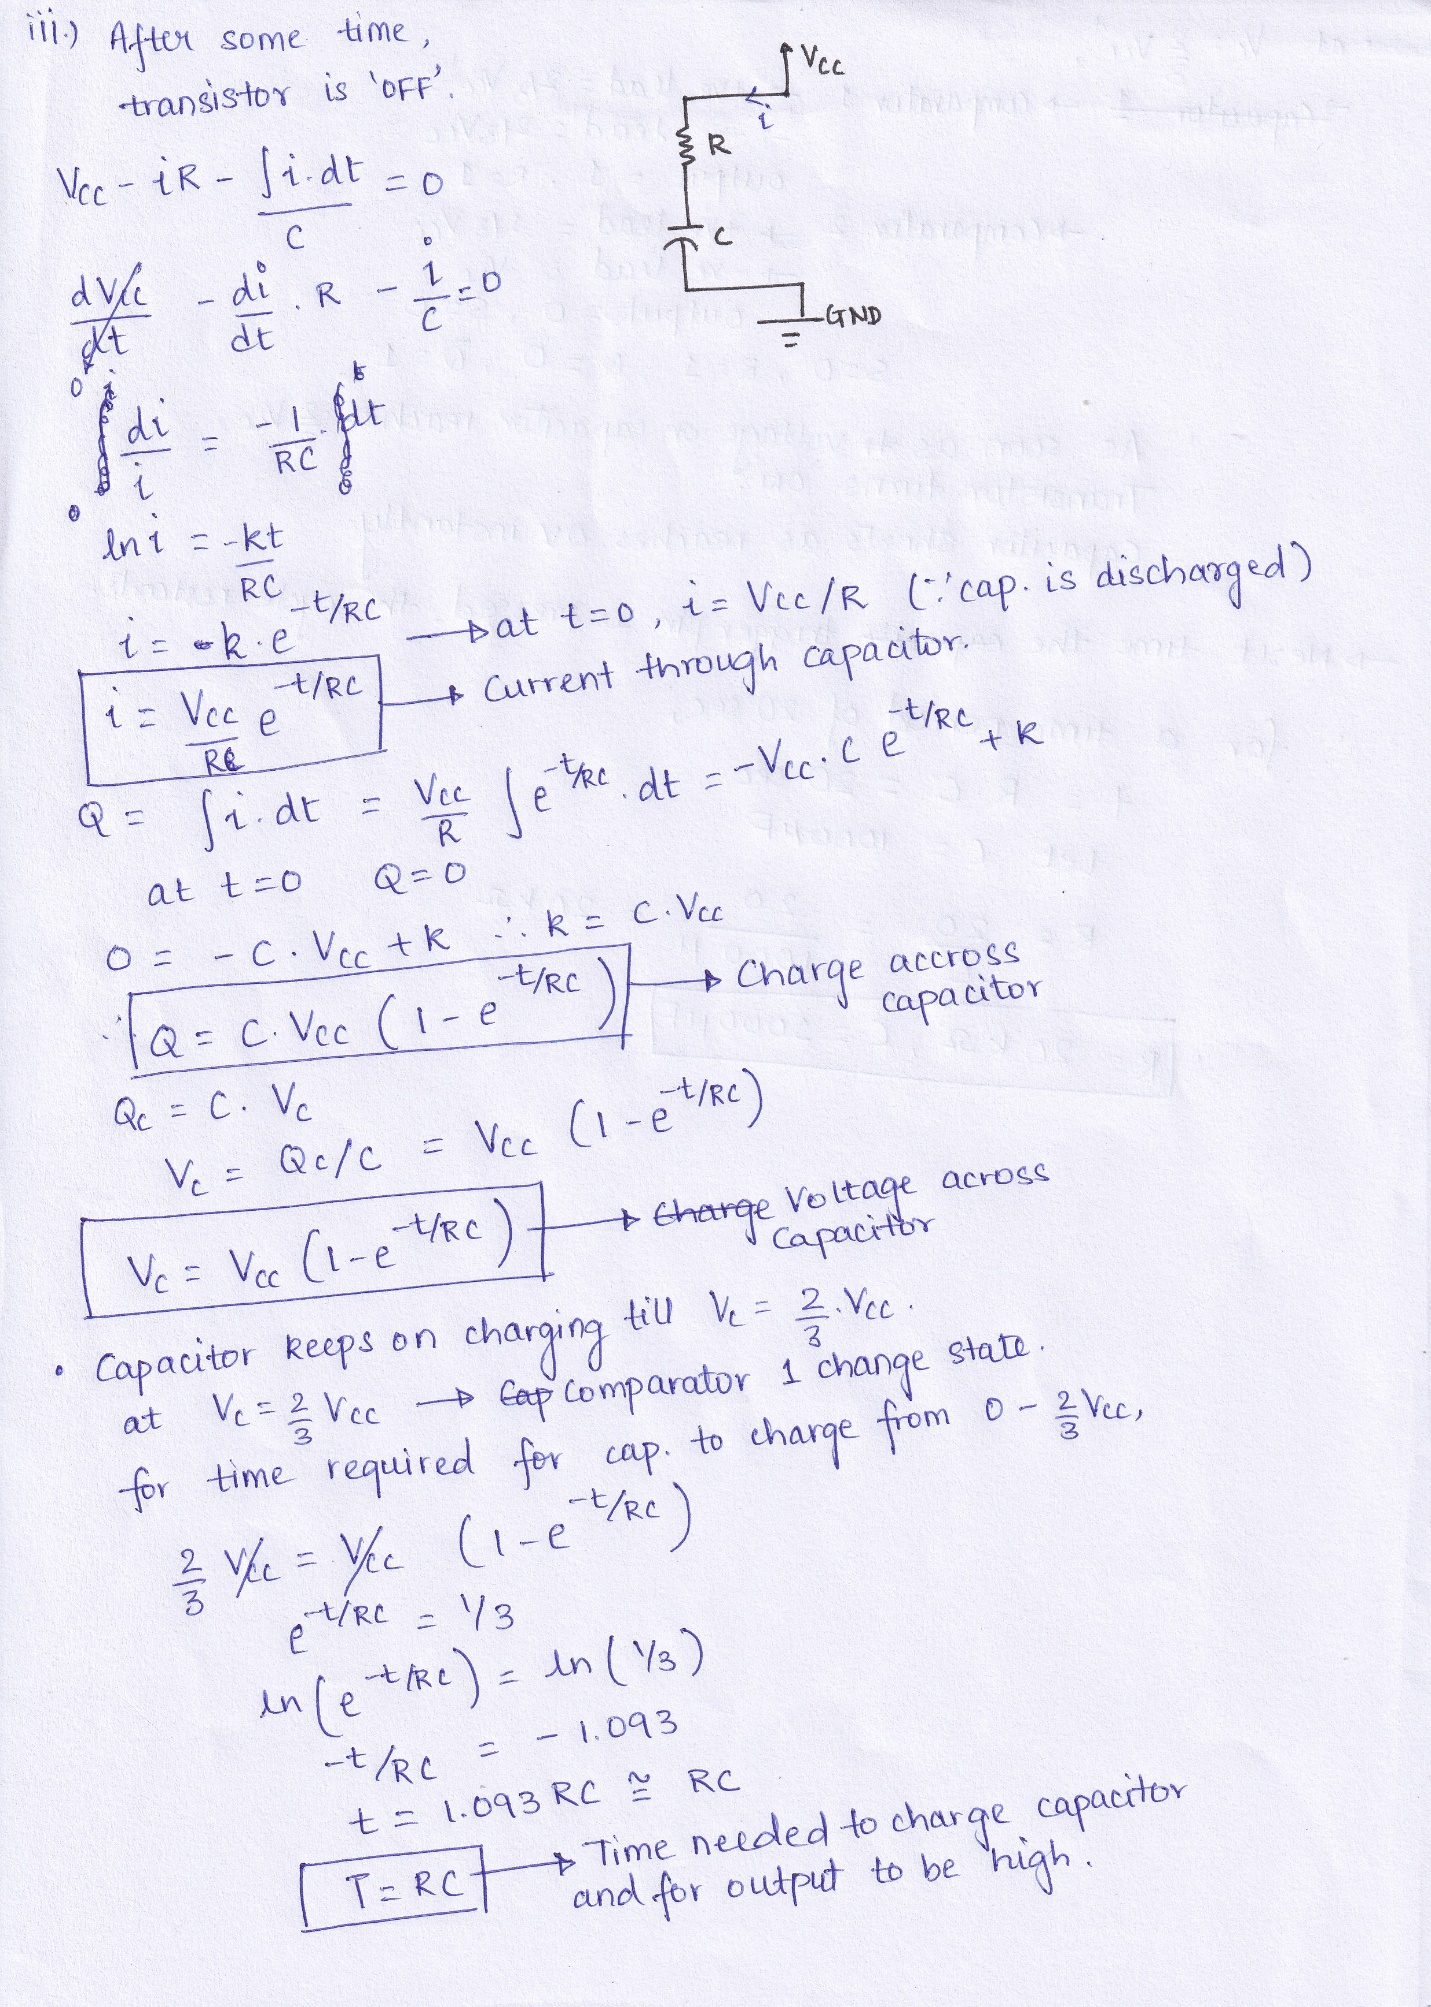 iii.) After some time,
transistor is 'OFF'.
Vcc
i
R
C
GND
Vcc - iR - ∫i.dt/C = 0
dVcc/dt - di/dt . R - i/C = 0
0
∫ di/i = -1/RC . ∫dt
ln i = -kt/RC
i = k.e^-t/RC → at t=0, i = Vcc/R (∵ cap. is discharged)
i = Vcc/R e^-t/RC → Current through capacitor.
Q = ∫i.dt = Vcc/R ∫e^-t/RC . dt = -Vcc.C e^-t/RC + k
at t=0 Q=0
0 = -C.Vcc + k ∴ k = C.Vcc
∴ Q = C.Vcc (1-e^-t/RC) → Charge accross
capacitor
Qc = C. Vc
Vc = Qc/C = Vcc (1-e^-t/RC)
Vc = Vcc (1-e^-t/RC) → Charge Voltage across
Capacitor
• Capacitor keeps on charging till Vc = 2/3.Vcc.
at Vc = 2/3 Vcc → Cap Comparator 1 change state.
for time required for cap. to charge from 0 - 2/3 Vcc,
2/3 Vcc = Vcc (1-e^-t/RC)
e^-t/RC = 1/3
ln(e^-t/RC) = ln(1/3)
-t/RC = -1.093
t = 1.093 RC ≅ RC
T = RC → Time needed to charge capacitor
and for output to be high.